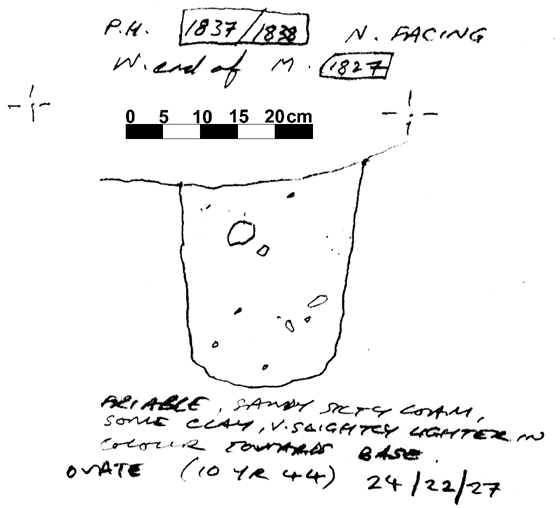 P.H. 1837/1838 N. FACING
W. end of M. 1827
0 5 10 15 20cm
FRIABLE, SANDY SILTY LOAM,
SOME CLAY, V. SLIGHTLY LIGHTER IN
COLOUR TOWARDS BASE.
OVATE (10 YR 44) 24/22/27